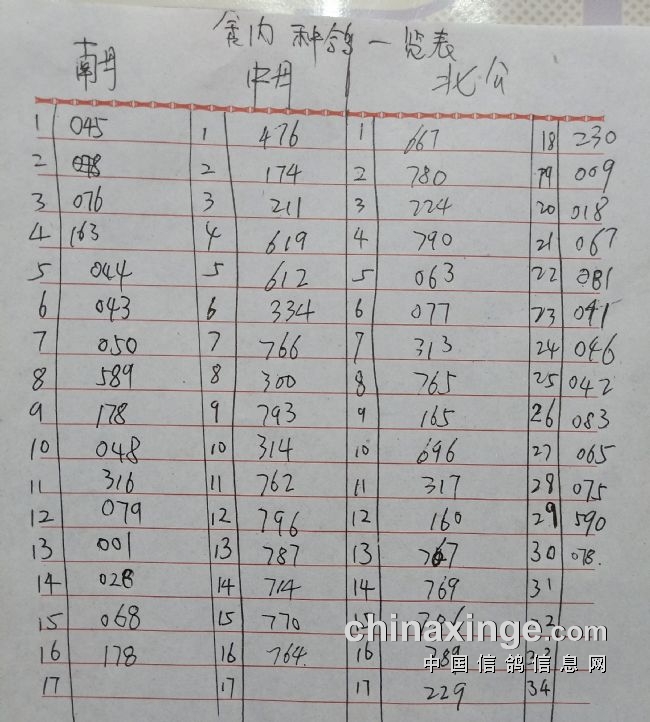 舍内 种鸽一览表
南丹 中丹 北公
1 045 1 476 1 667 18 230
2 2 174 2 780 19 009
3 076 3 211 3 224 20 018
4 163 4 619 4 790 21 067
5 044 5 612 5 063 22 081
6 043 6 334 6 077 23 041
7 050 7 766 7 313 24 046
8 589 8 300 8 765 25 042
9 178 9 793 9 165 26 083
10 048 10 314 10 696 27 065
11 316 11 762 11 317 28 075
12 079 12 796 12 160 29 590
13 001 13 787 13 767 30 078
14 028 14 714 14 769 31
15 068 15 770 15 32
16 178 16 764 16 789 33
17 17 17 229 34
chinaxinge.com
中国信鸽信息网